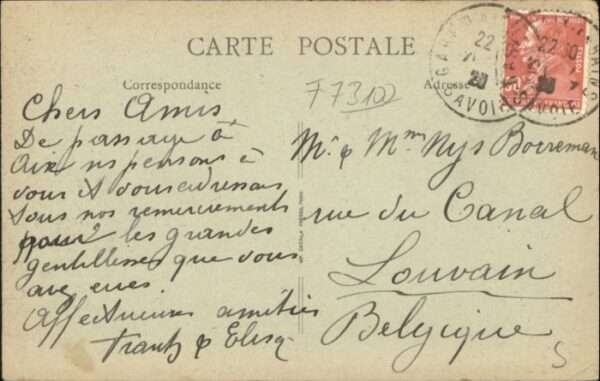 CARTE POSTALE
Correspondance
Adresse
F73102
Chers Amis
De passage à
Aix ns pensons à
vous & vous adressons
tous nos remerciements
pour les grandes
gentillesses que vous
avez eues.
Affectueuses amitiés
Frantz & Elisa
Mr & Mme Nys Borreman
rue du Canal
Louvain
Belgique